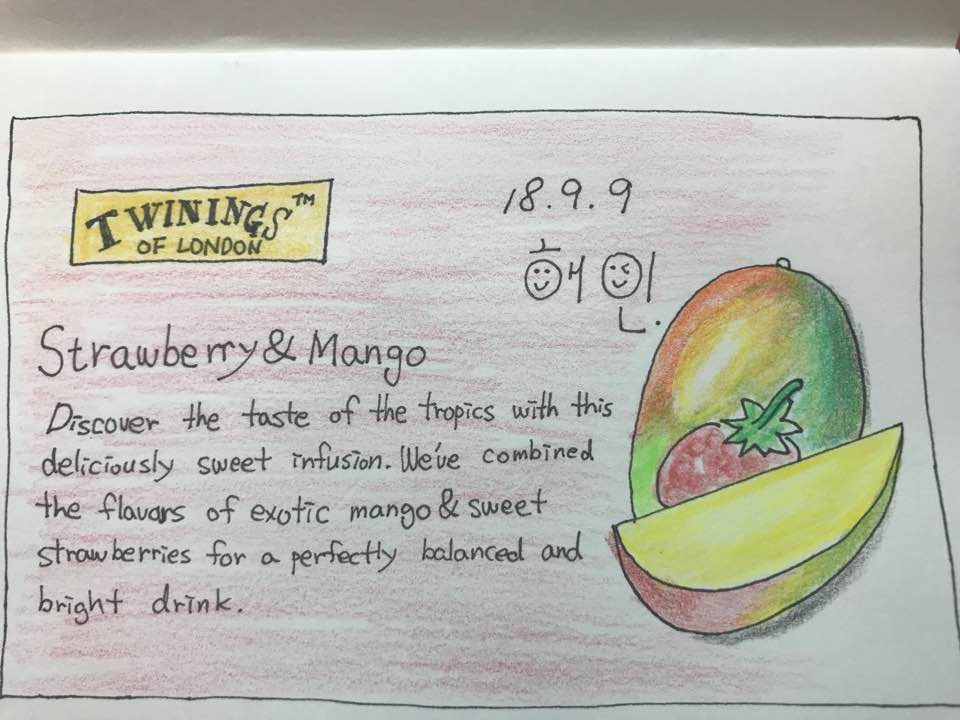 TWININGS™
OF LONDON
18.9.9
해인.
Strawberry & Mango
Discover the taste of the tropics with this
deliciously sweet infusion. We've combined
the flavors of exotic mango & sweet
strawberries for a perfectly balanced and
bright drink.